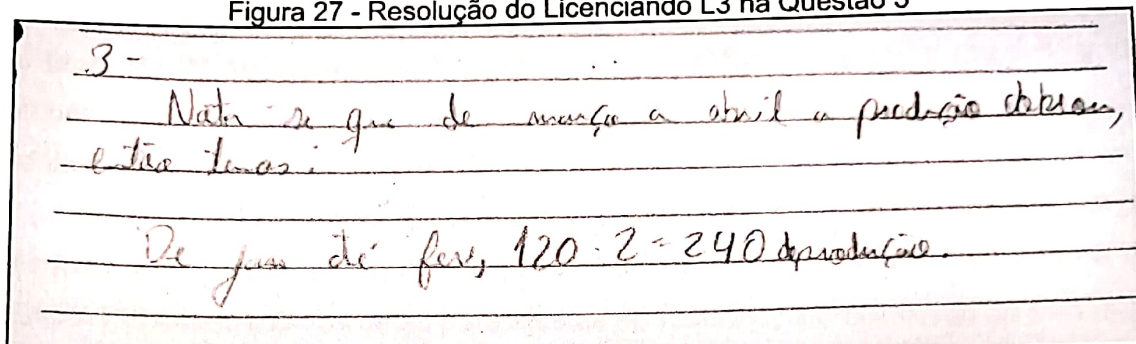 Figura 27 - Resolução do Licenciando L3 na Questão 3
3-
Nota se que de março a abril a produção dobrou,
então temos:
De jan até fev, 120 · 2 = 240 de produção.